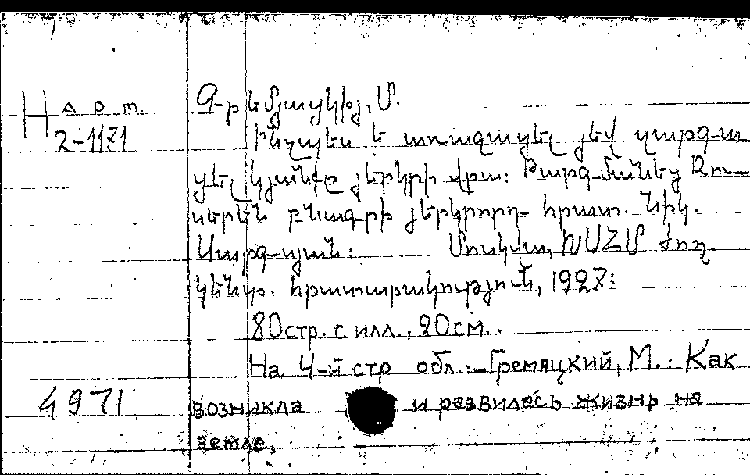 Н а р т.
2-1171
Գ-րեմյացկիյ, Մ.
Ինչպես է առաջացել յեվ զարգա
ցել կյանքը յերկրի վրա: Թարգմանեց Ռու-
սերեն բնագրի յերկրորդ հրատ. Նիկ.
Սարգսյան: Մոսկվա, ԽՍՀՄ ժող.
կենտր. հրատարակություն, 1927:
80 стр. с илл., 20 см.
На 4-й стр обл.: Гремяцкий, М.: Как
4971
возникла и развилась жизнь на
земле.